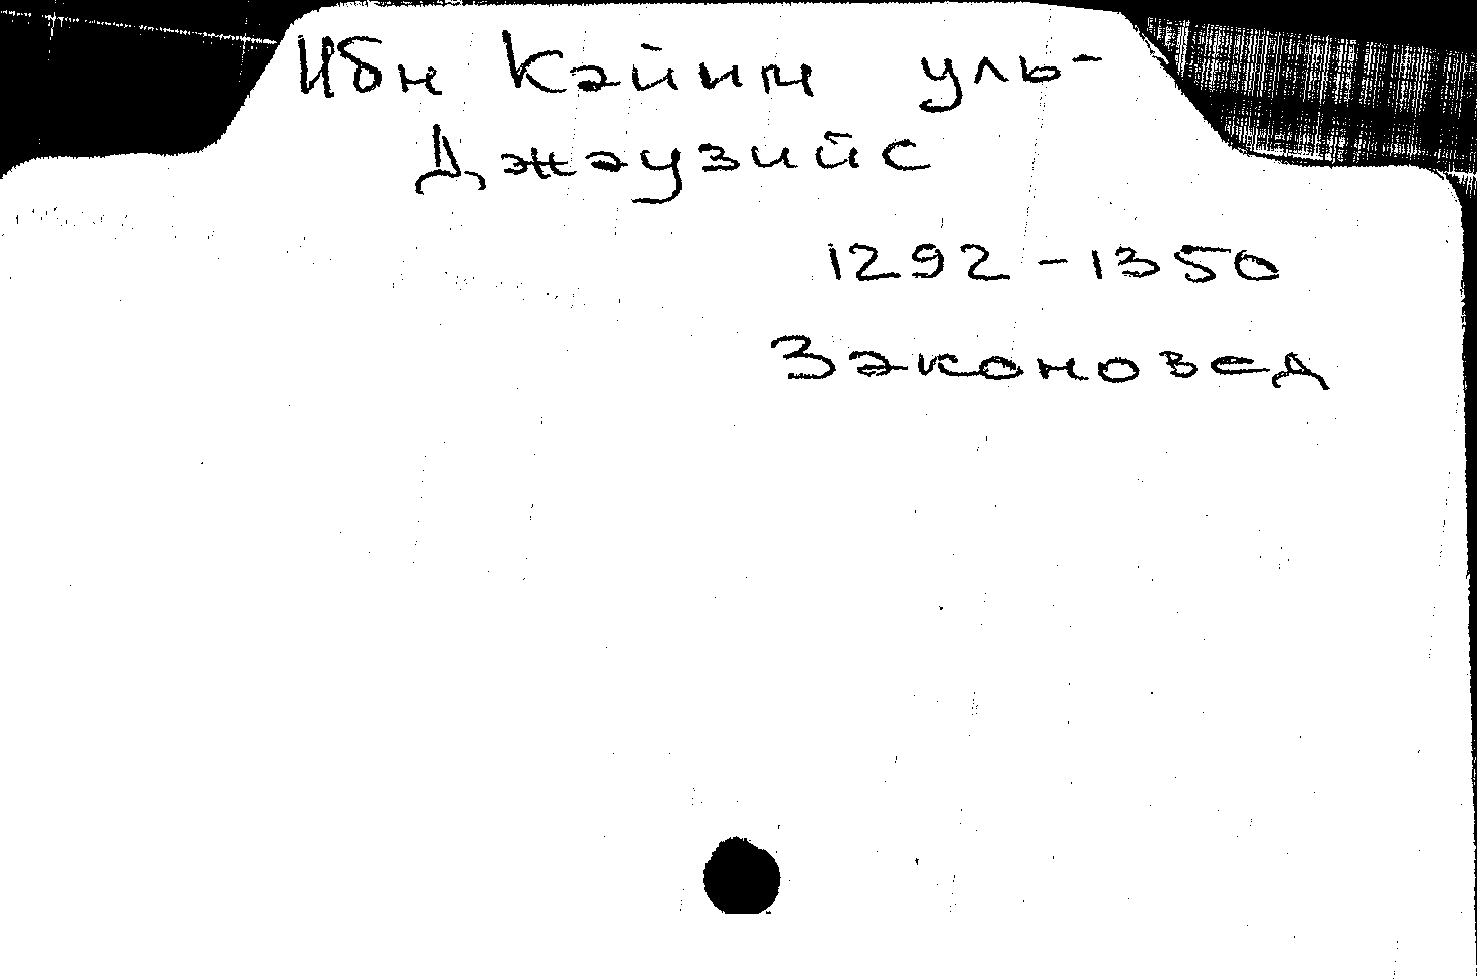 Ибн Кайим уль-
Джаузийс
1292-1350
Законовед